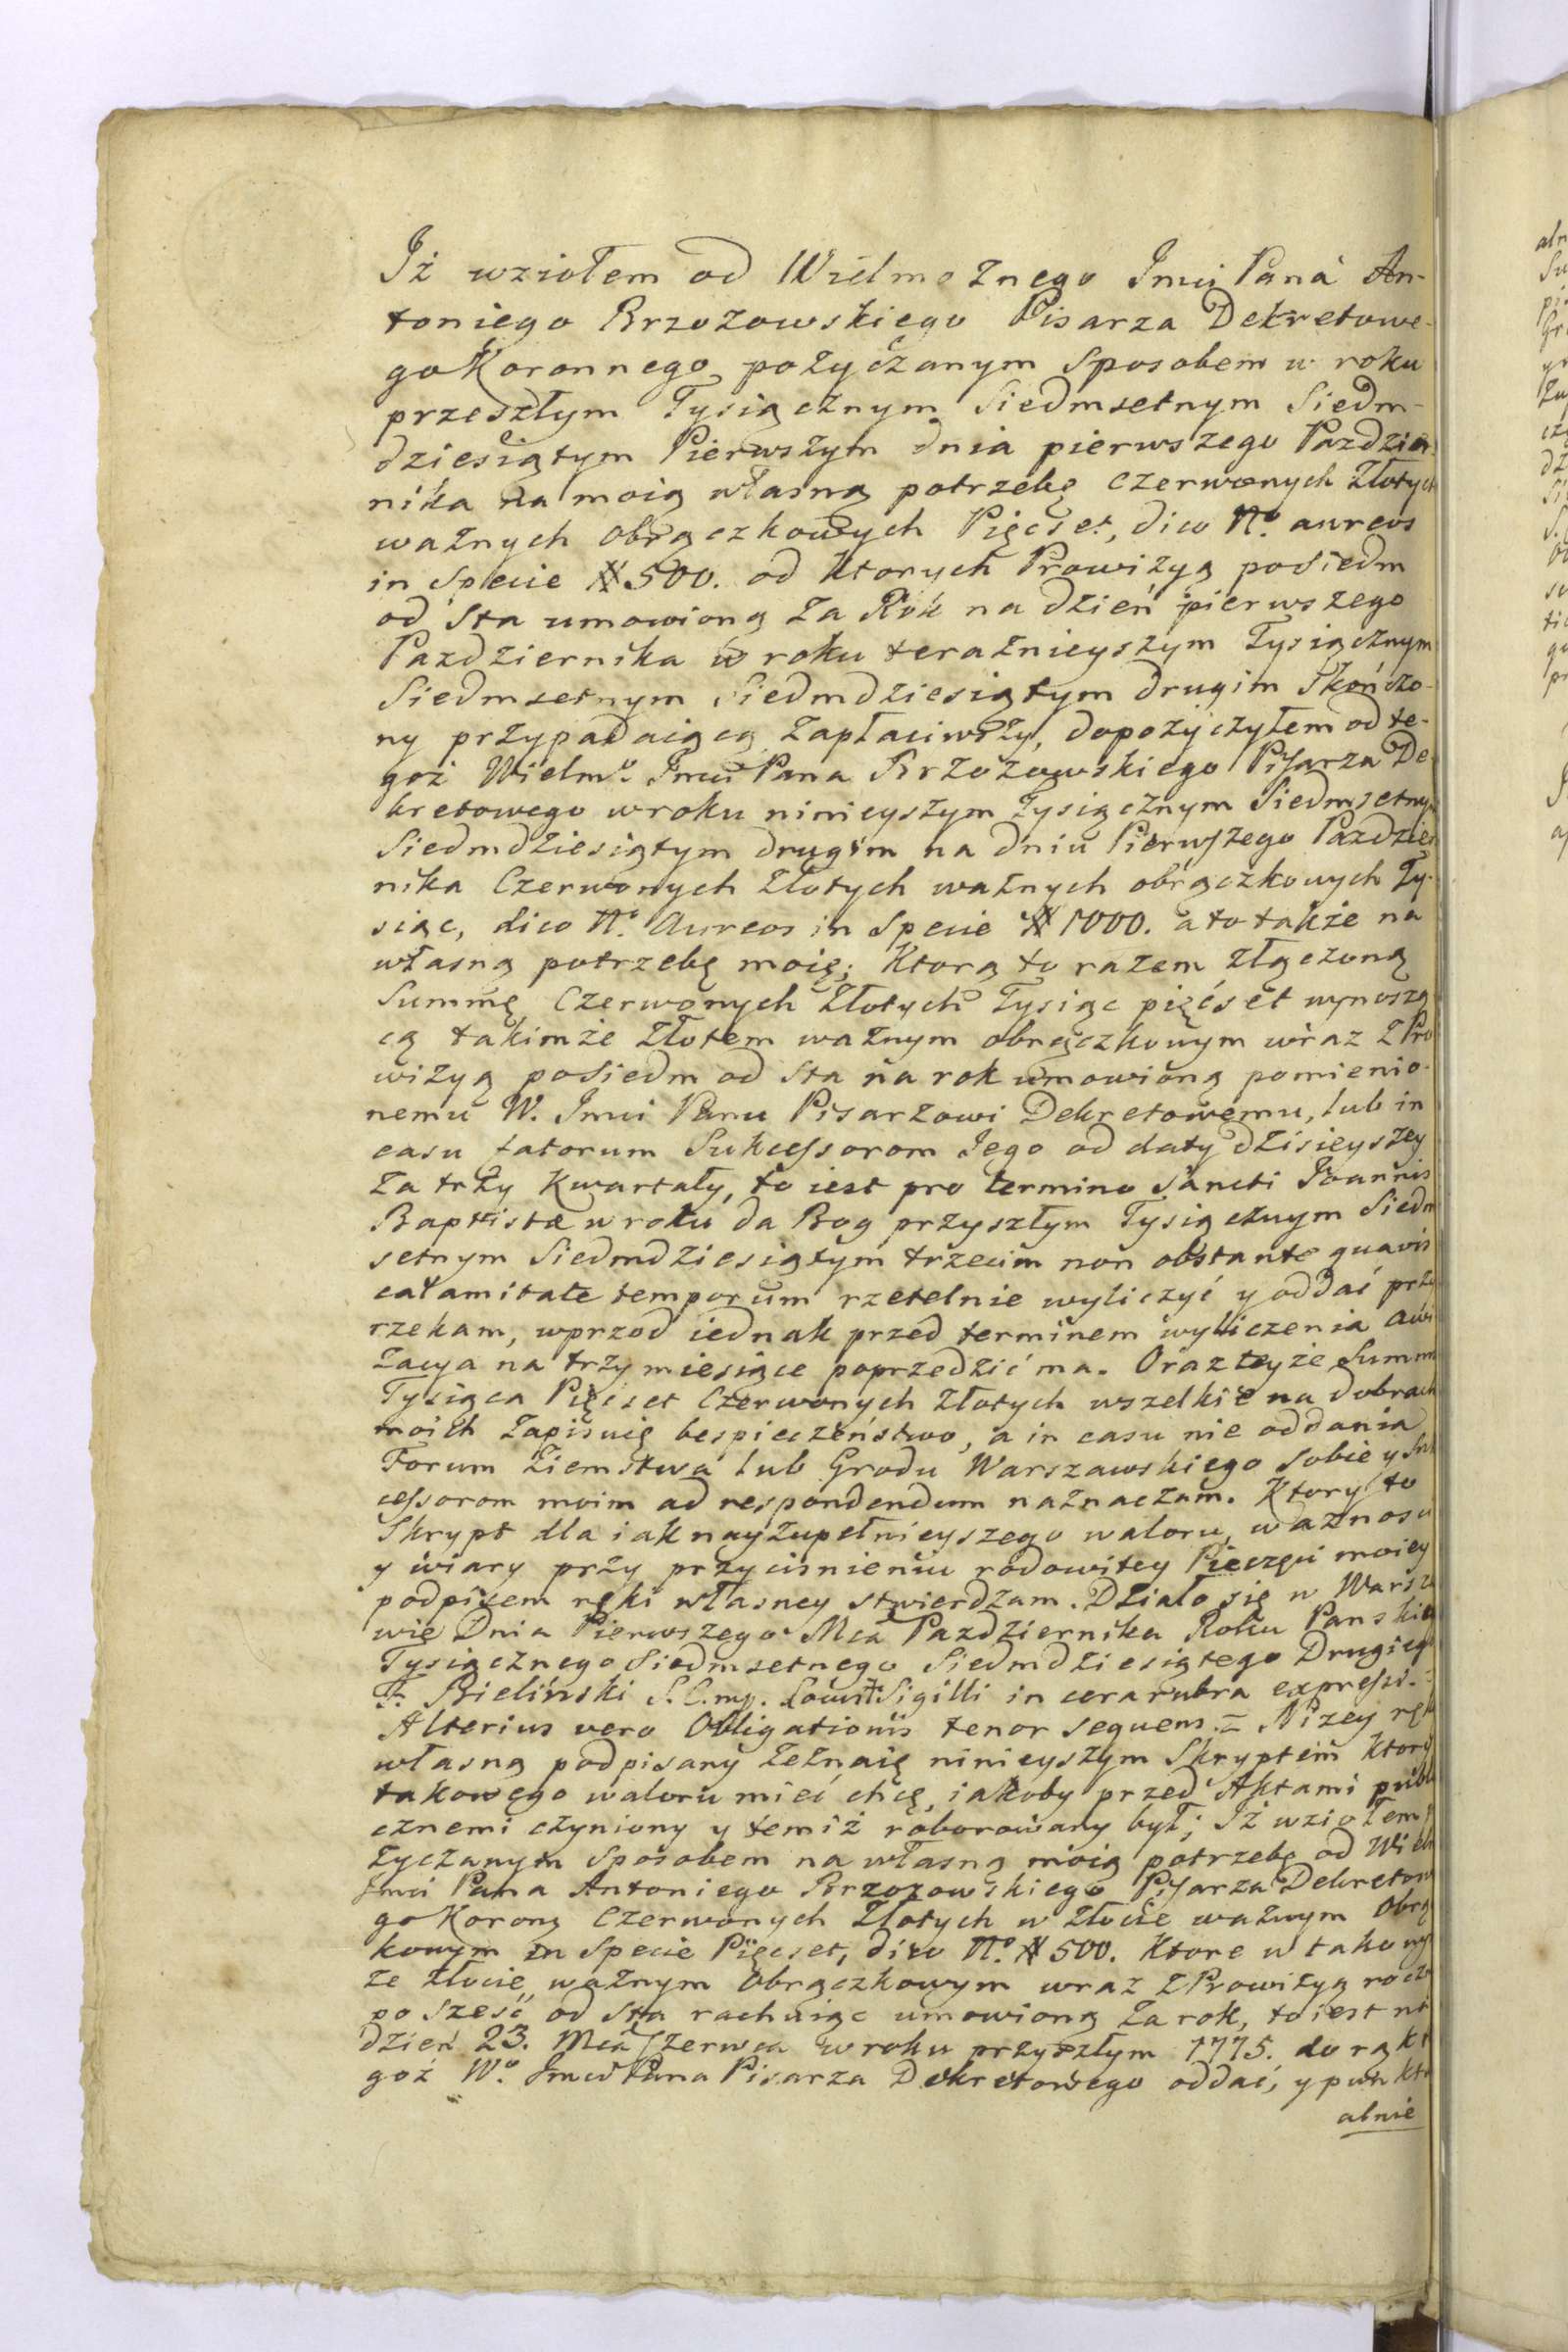 Iż wziołem od Wielmożnego Jmci Pana An-
toniego Brzozowskiego Pisarza Dekretowe-
go Koronnego pożyczanym sposobem w roku
przeszłym Tysiącznym Siedmsetnym Siedm-
dziesiątym Pierwszym dnia pierwszego Pazdzier
nika na moią własną potrzebę czerwonych złotych
ważnych obrączkowych Pięcset, dico No. aureos
in specie # 500. od ktorych Prowizyą posiedm
od sta umowioną za Rok na dzień pierwszego
Pazdziernika w roku teraznieyszym Tysiącznym
Siedmsetnym Siedmdziesiątym drugim skończo-
ny przypadaiącą zapłaciwszy, dopożyczyłem od te-
goż Wielmo. Jmci Pana Brzozowskiego Pisarza De
kretowego w roku ninieyszym Tysiącznym Siedmsetnym
Siedmdziesiątym drugim na dniu Pierwszego Pazdzier
nika Czerwonych złotych ważnych obrączkowych Ty-
siąc, dico No. Aureos in specie # 1000. a to także na
własną potrzebę moię; Ktorą to razem złączoną
Summę Czerwonych Złotych Tysiąc pięćset wynoszą
cą takimże złotem ważnym obrączkowym wraz z Pro
wizyą posiedm od sta na rok umowioną pomienio-
nemu W. Jmci Panu Pisarzowi Dekretowemu, lub in
casu fatorum Sukcessorom Jego od daty dzisieyszey
za trzy Kwartały, to iest pro termino Sancti Joannis
Baptistæ w roku da Bog przyszłym Tysiącznym Siedm
setnym Siedmdziesiątym trzecim non obstante quavis
calamitate temporum rzetelnie wyliczyć y oddać przy
rzekam, wprzod iednak przed terminem wyliczenia awi
zacya na trzy miesiące poprzedzić ma. Oraz teyże Summ
Tysiąca Pięcset Czerwonych złotych wszelkie na dobrach
moich zapisuię bespieczeństwo, a in casu nie oddania
Forum Ziemstwa lub Grodu Warszawskiego sobie y Suk
cessorom moim ad respondendum naznaczam. Ktory to
Skrypt dla iak nayzupełnieyszego waloru, ważnosci
y wiary przy przyciśnieniu rodowitey Pieczęci moiey
podpisem ręki własney stwierdzam. Działo się w Warsza
wie Dnia Pierwszego Mca Pazdziernika Roku Panskie
Tysiącznego Siedmsetnego Siedmdziesiątego Drugiego
F. Bieliński S.C.mp. Locus Sigilli in cera rubra expressi.-
Alterius vero Obligationis tenor sequens.= Nizey ręką
własną podpisany zeznaię ninieyszym Skryptem ktory
takowego waloru mieć chcę, iakoby przed Aktami publi
cznemi czyniony y temiż roborowany był; Iż wziołem
życzanym sposobem na własną moią potrzebę od Wielm
Jmci Pana Antoniego Brzozowskiego Pisarza Dekretowe
go Korong Czerwonych Złotych w złocie ważnym obrą
kowym in specie Pięcset, dico No. # 500. Ktore w takowym
że złocie ważnym obrączkowym wraz z Prowizyą roczn
po sześć od sta rachuiąc umowioną za rok, to iest na
dzień 23. Mca Czerwca w roku przyszłym 1775. do rąk t
goż Wo. Jmci Pana Pisarza Dekretowego oddać, y punktu
alnie